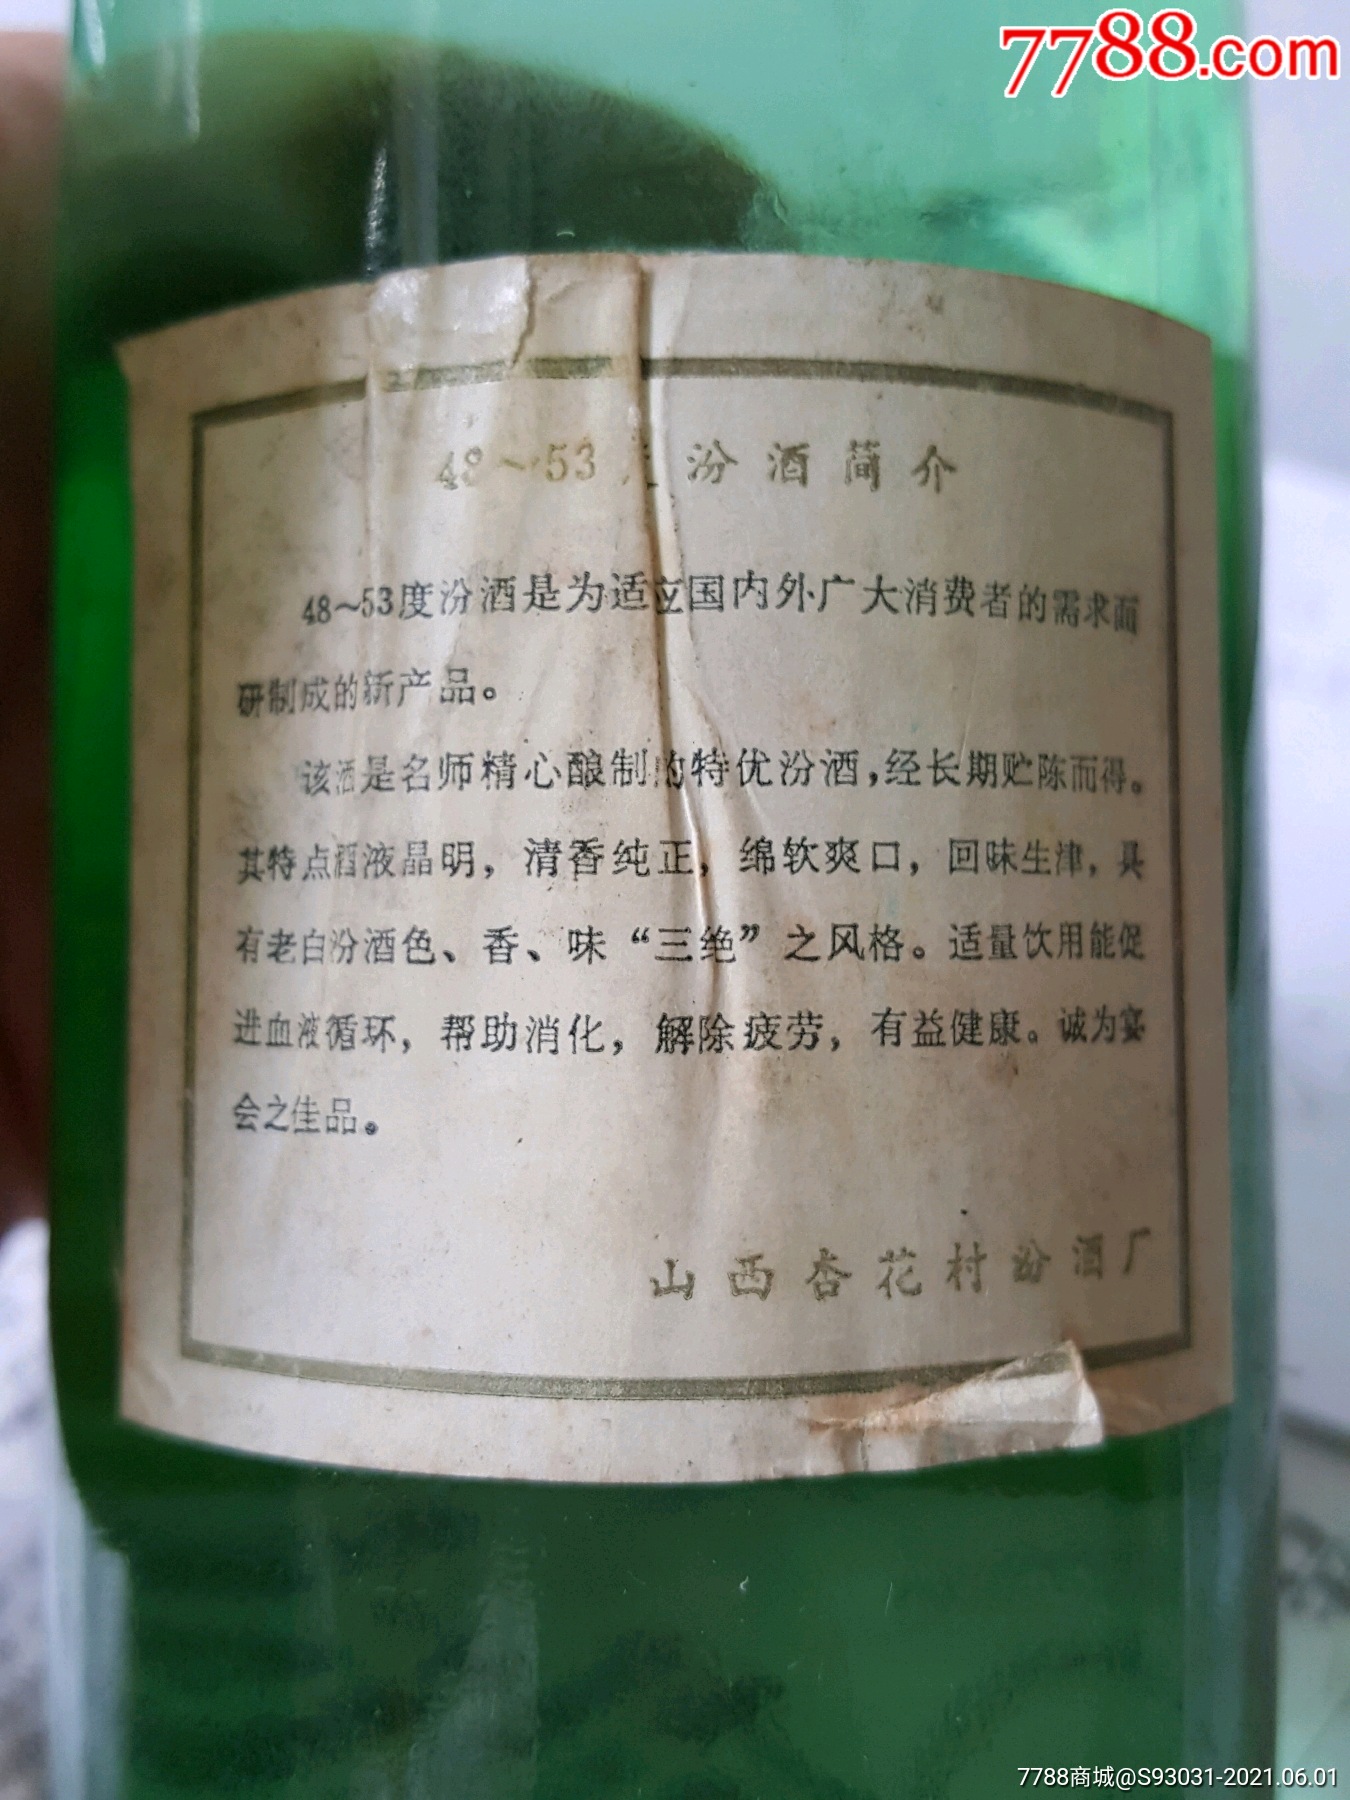 7788.com
48～53度汾酒简介
48～53度汾酒是为适应国内外广大消费者的需求而
研制成的新产品。
该酒是名师精心酿制的特优汾酒，经长期贮陈而得。
其特点酒液晶明，清香纯正，绵软爽口，回味生津，具
有老白汾酒色、香、味“三绝”之风格。适量饮用能促
进血液循环，帮助消化，解除疲劳，有益健康。诚为宴
会之佳品。
山西杏花村汾酒厂
7788商城@S93031-2021.06.01